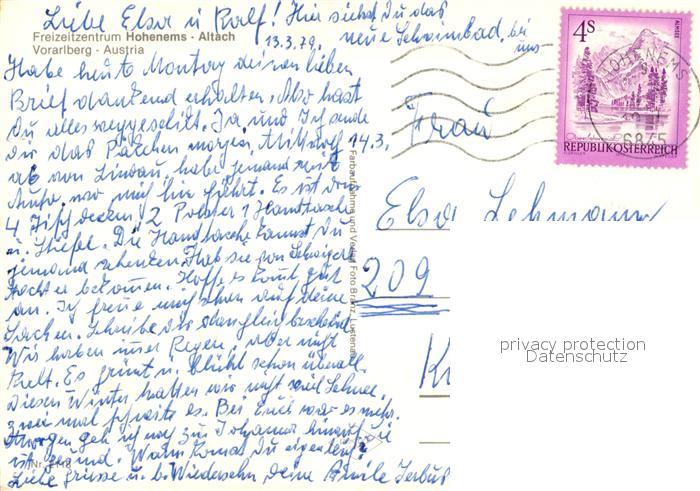 Liebe Elsa u Ralf! Hir siehst Du das
Freizeitzentrum Hohenems - Altach
Vorarlberg - Austria
13.3.79.
neue Schwimbad, bei uns
Habe heute Montag deinen lieben
Brief dankend erhalten, Also hast
Du alles weggeschikt. Ja und Ich sende
dir das Päkchen morgen, Mittwoch 14.3,
ab von Lindau, habe jemand mit
Auto, wo mich hin führt. Es ist drin
4 decken, 2 Polster 1 Handtasche
u. Stiefel. Die Handtasche kannst du
jemand schenken Hab sie von Schwiger
tochter bekommen. Hoffe es komt gut
an. Ich freue mich schon auf deine
Sachen. Schreibe dir dan gleich bescheid
Wir haben imer Regen, aber nicht
Kalt. Es grünt u. blüht schon überall
Diesen Winter hatten wir nicht viel Schnee,
zwei mal es. Bei Euch war es mehr.
Morgen geh ich noch zu Johanna hinauf Sie
ist gesund. Wann Komst Du eigentlich?
Liebe Grüsse u. b. Wiedersehn deine
Nr. 2118
Farbaufnahme und Verlag Foto Branz, Lustenau
4S
ALMSEE
REPUBLIK ÖSTERREICH
HOHENEMS
6845
Frau
Elsa Lehmann
209
K
privacy protection
Datenschutz